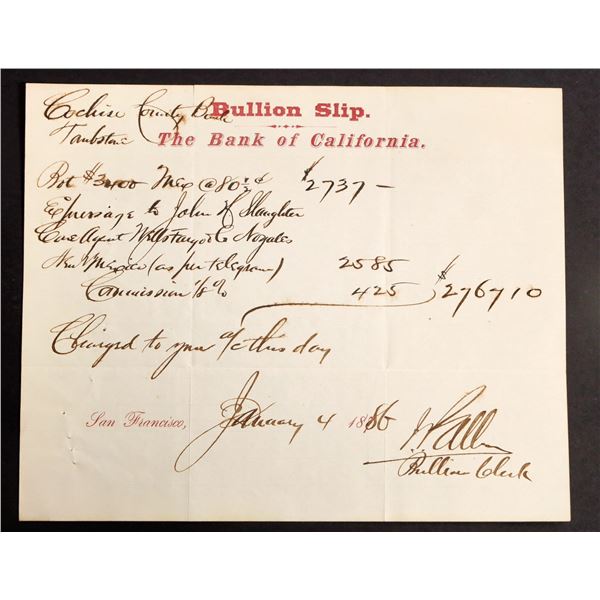 Bullion Slip.
Cochise County Bank
Tombstone
The Bank of California.
Bot $3400 Mex @ 80 1/2 ¢ $2737 –
Expressage to John H Slaughter
Care Agent Wells Fargo & Co Nogales
New Mexico (as per telegram) 25 85
Commission 1/8 % 4 25 $2767 10
Charged to your a/c this day
San Francisco, January 4 1886
Bullion Clerk